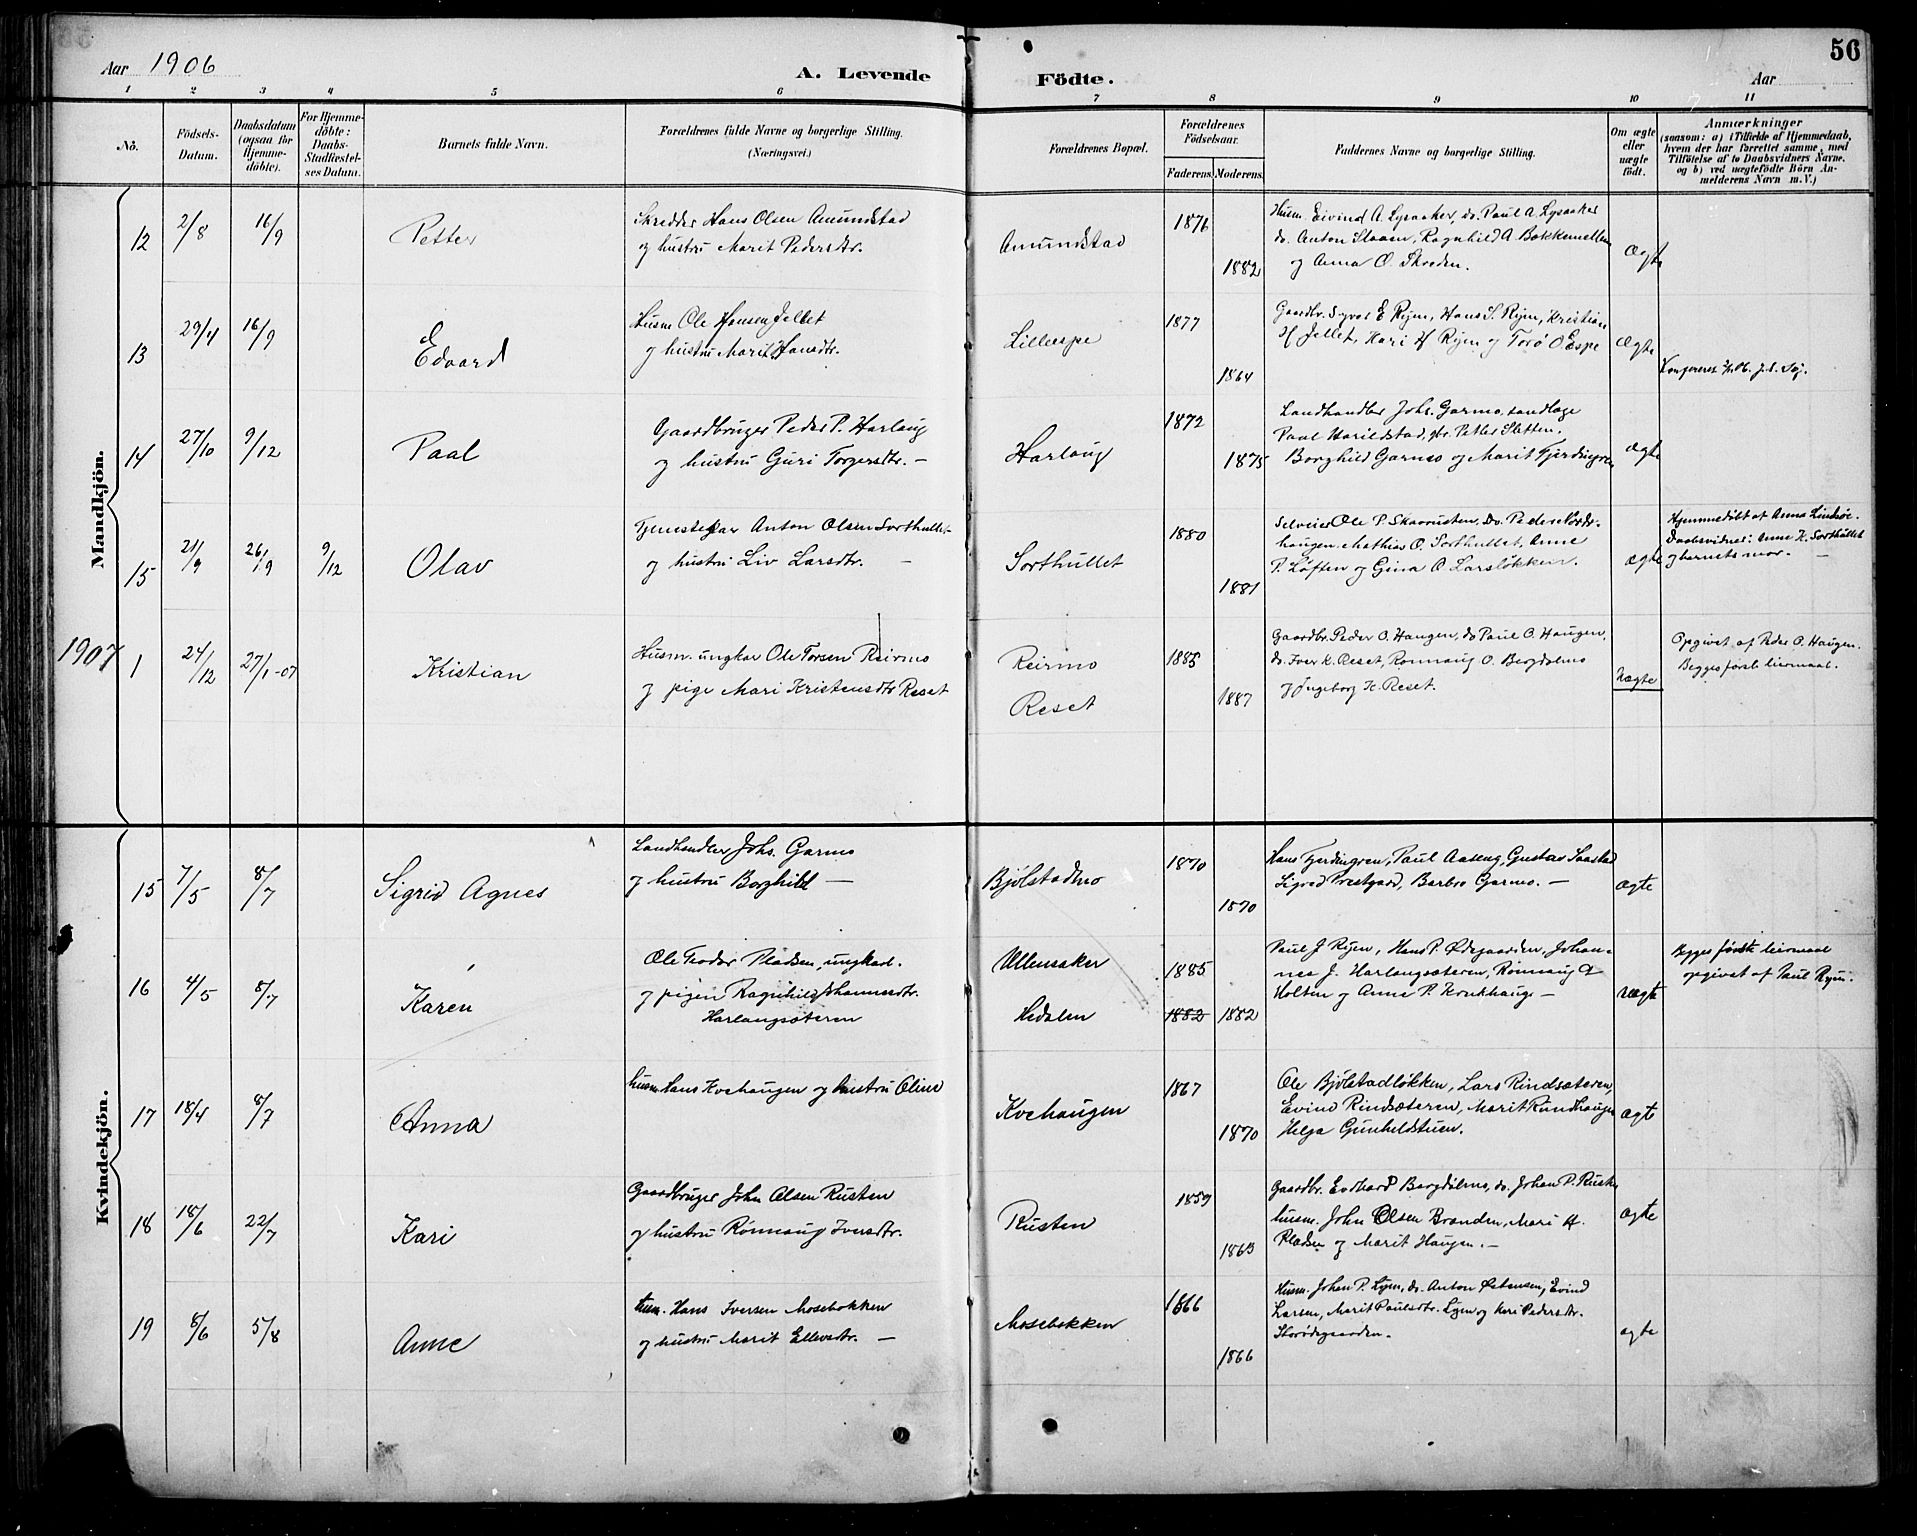 56
Aar 1906
A. Levende
Födte.
Aar
1 2 3 4 5 6 7 8 9 10 11
No.
Födsels-
Datum.
Daabsdatum
(ogsaa for
Hjemme-
döbte).
For Hjemme-
döbte:
Daabs-
Stadfæstel-
ses Datum.
Barnets fulde Navn.
Forældrenes fulde Navne og borgerlige Stilling.
(Næringsvei.)
Forældrenes Bopæl.
Forældrenes
Födselsaar.
Faderens. Moderens.
Faddernes Navne og borgerlige Stilling.
Om ægte
eller
uægte
födt.
Anmærkninger
(saasom: a) i Tilfælde af Hjemmedaab,
hvem der har forrettet samme, med
Tilföielse af to Daabsvidners Navne,
og b) ved uægtefödte Börn An-
melderens Navn m.V.)
Mandkjön.
12 2/8 16/9 Petter
Skrædder Hans Olsen Amundstad
og hustru Marit Pedersdtr.
Amundstad
1876
1882
Husm. Eivind A. Lysaaker, do. Paul A. Lysaaker
do. Anton Slaaen, Ragnhild A. Bakkemellem
og Anna O. Skreden.
Ægte
13 29/4 16/9 Edvard
Husm Ole Hansen Jellet
og hustru Marit Hansdtr.
Lilleespe
1877
1864
Gaardbr. Syver E Ryen, Hans S. Ryen, Kristian
H Jellet, Kari H Ryen og Torø O Espe
Ægte
14 27/10 9/12 Paal
Gaardbruger Peder P. Harlaug
og hustru Guri Torgersdtr. —
Harlaug
1872
1875
Landhandler Johs. Garmo, tandlæge
Paal Harildstad, Petter Sletten.
Borghild Garmo og Marit Fjerdingren
Ægte
15 21/9 26/9 9/12 Olav
Tjenestekar Anton Olsen Sorthullet
og hustru Liv Larsdtr. —
Sorthullet
1880
1881
Selveier Ole P. Skaarusten, do. Peder Nords-
haugen. Mathias O. Sorthullet, Anne
P. Løften og Gina O. Larsløkken.
Ægte
Hjemmedøbt af Anna Lindsøe.
Daabsvidner: Anne H. Sorthullet
og barnets mor. —
1907
1 24/12 27/1-07 Kristian
Husm. ungkar Ole Torsen Reirmo
og pige Mari Kristensdtr Reset
Reirmo
Reset
1885
1887
Gaardbr. Peder O. Haugen, do Paul O. Haugen,
do. Iver K. Reset, Rønnaug O. Bergdølmo
og Ingeborg K. Reset.
Uægte
Opgivet af Peder O. Haugen.
Begges første leiermaal.
Kvindekjön.
15 7/5 8/7 Sigrid Agnes
Landhandler Johs. Garmo
og hustru Borghild —
Bjølstadmo
1870
1870
Hans Fjerdingren, Paul Aaseng, Gustav Saastad
Sigrid Prestgard, Barbro Garmo. —
Ægte
16 4/5 8/7 Karen
Ole Pladsen, ungkarl.
og pigen Ragnhild Johannesdtr.
Harlaugsæteren
Ullensaker
Hedalen
1885
1882 1882
Paul J Ryen, Hans P. Ødegaarden, Johan-
nes J. Harlaugsæteren, Rønnaug
Holten og Anne P. Krukhaug —
Uægte
Begges første leiermaal
opgivet af Paul Ryen.
17 18/4 8/7 Anna
husm. Hans Kvehaugen og hustru Oline
Kvehaugen
1867
1870
Ole Bjølstadløkken, Lars Rindsæteren,
Eivind Rindsæteren, Marit Rundhaugen
Helga Gunhildstuen.
Ægte
18 18/6 22/7 Kari
Gaardbruger John Olsen Rusten
og hustru Rønnaug Iversdtr.
Rusten
1859
1863
Gaardbr. Endhard Bergdølmo, do. Johan P. Rusten
husm. John Olsen Branden, Mari H.
Pladsen og Marit Haugen. —
Ægte
19 8/6 5/8 Anne
husm. Hans Iversen Mosebakken
og hustru Marit Ellevsdtr. —
Mosebakken
1866
1866
Husm. Johan P. Lyen, do. Anton Østensen, Eivind
Larsen, Marit Paulsdtr. Lyen og Kari Pedersdtr.
Skrødegaarden.
Ægte